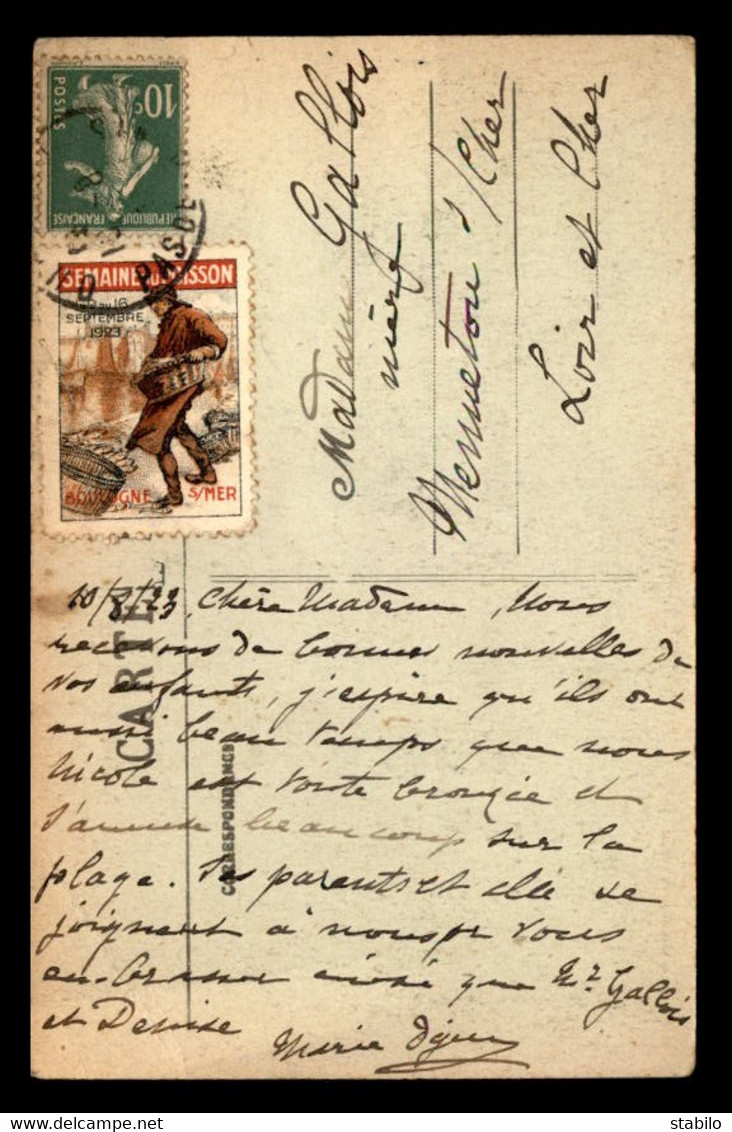 10c
POSTES
REPUBLIQUE FRANÇAISE
PAS DE
SEMAINE DU POISSON
AU 16
SEPTEMBRE
1923
BOULOGNE S/MER
Madame Gallois
Mennetou s/Cher
Loir et Cher
CARTE
CORRESPONDANCE
10/8/23, Chère Madame, Nous
recevons de bonnes nouvelles de
vos enfants, j'espère qu'ils ont
aussi beau temps que nous
Nicole est toute bronzée et
s'amuse beaucoup sur la
plage. Ses parents et elle se
joignent à nous pr vous
embrasser ainsi que Mr Gallois
et Denise
Marie